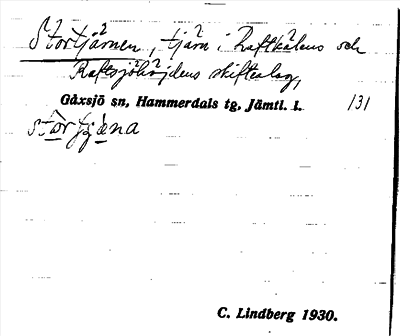 Stortjärnen, tjärn i Raftkälens och
Raftsjöhöjdens skifteslag,
Gåxsjö sn, Hammerdals tg, Jämtl. l. 131
stortjæna
C. Lindberg 1930.